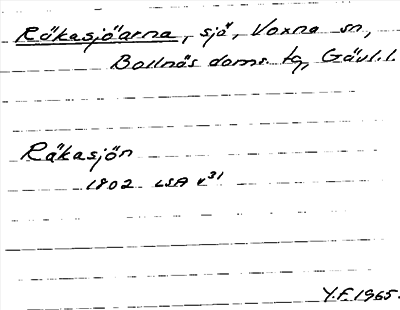 Råkasjöarna, sjö, Voxna sn,
Bollnäs doms. tg, Gävl.l.
Råkasjön
1802 LSA v31
Y.F. 1965.